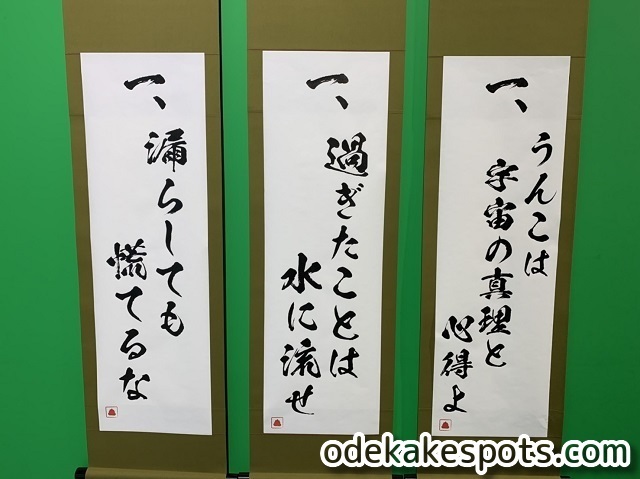 一、
うんこは
宇宙の真理と
心得よ
一、
過ぎたことは
水に流せ
一、
漏らしても
慌てるな
odekakespots.com